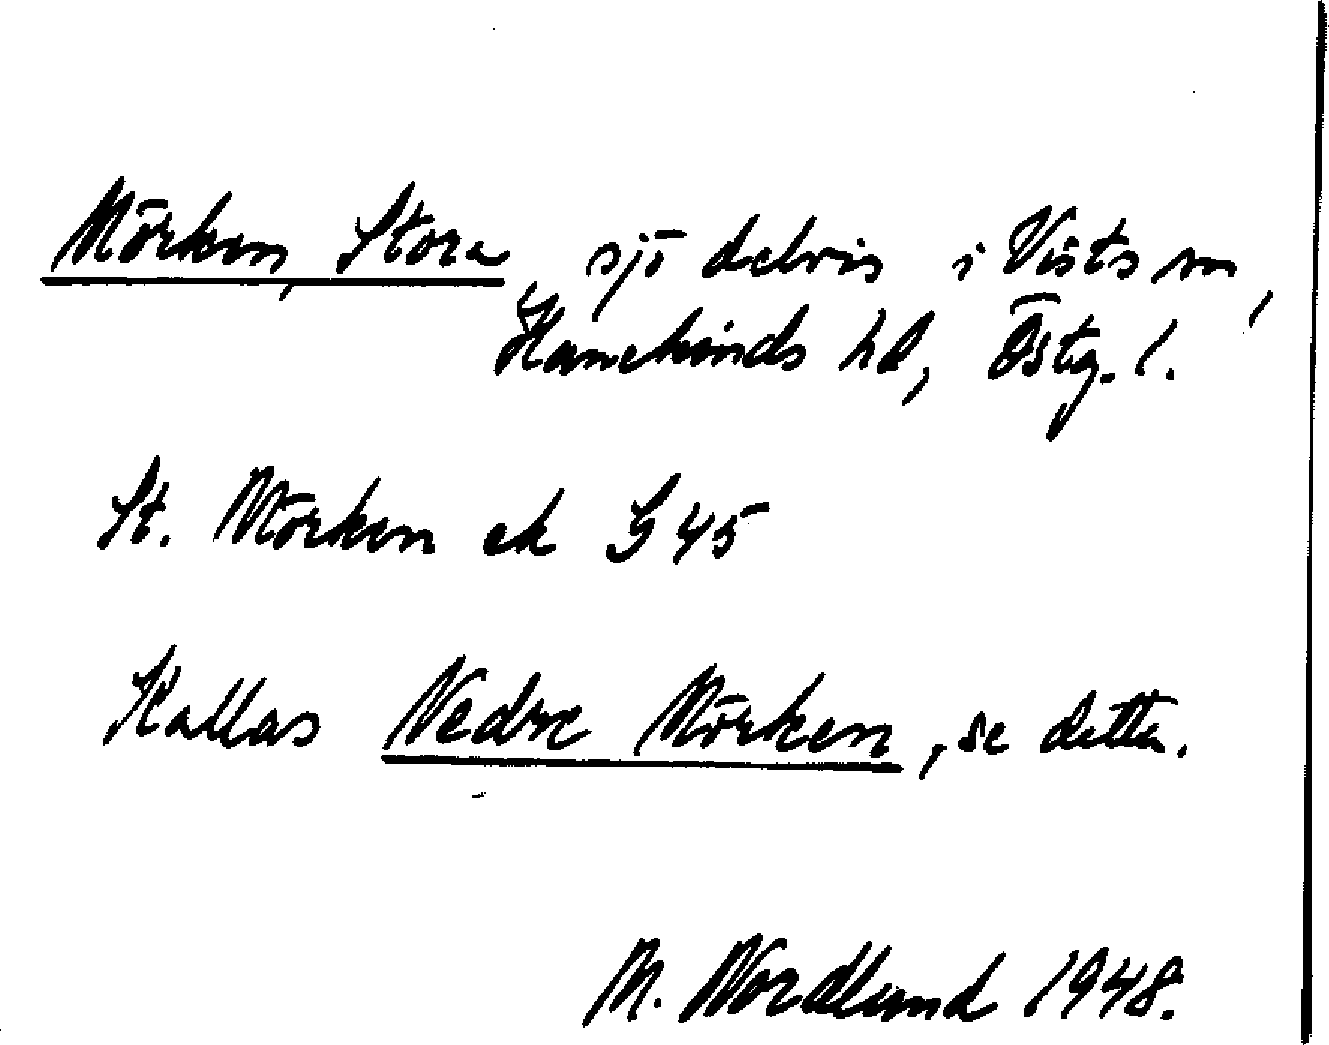 Mörken, Stora, sjö delvis i Vists sn,
Hanekinds hd, Östg. l.
St. Mörken ek G 45
Kallas Nedre Mörken, se detta.
M. Nordlund 1948.